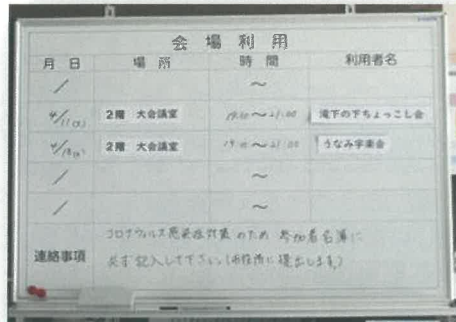 会場利用
月日 場所 時間 利用者名
/ ~
4/11(火) 2階 大会議室 19:00~21:00 滝下の下ちょっこし会
4/18(火) 2階 大会議室 19:00~21:00 うなみ字楽会
/ ~
/ ~
連絡事項
コロナウィルス感染症対策のため 参加者名簿に
必ず記入して下さい。(市役所に提出します)